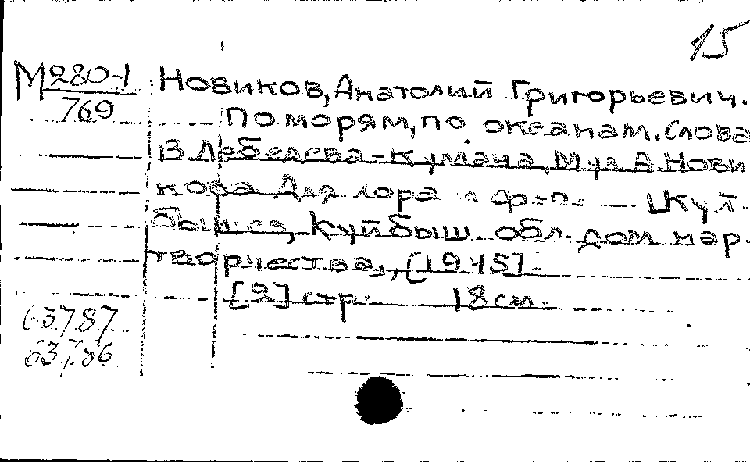 15
М280-1
769
Новиков, Анатолий Григорьевич.
По морям, по океанам. Слова
В. Лебедева-Кумача, Муз. А. Нови
кова. Для хора и ф-п. — [Куй-
бышев], Куйбыш. обл. дом нар.
творчества, [1945].
[2] стр. 18 см.
63787
63786